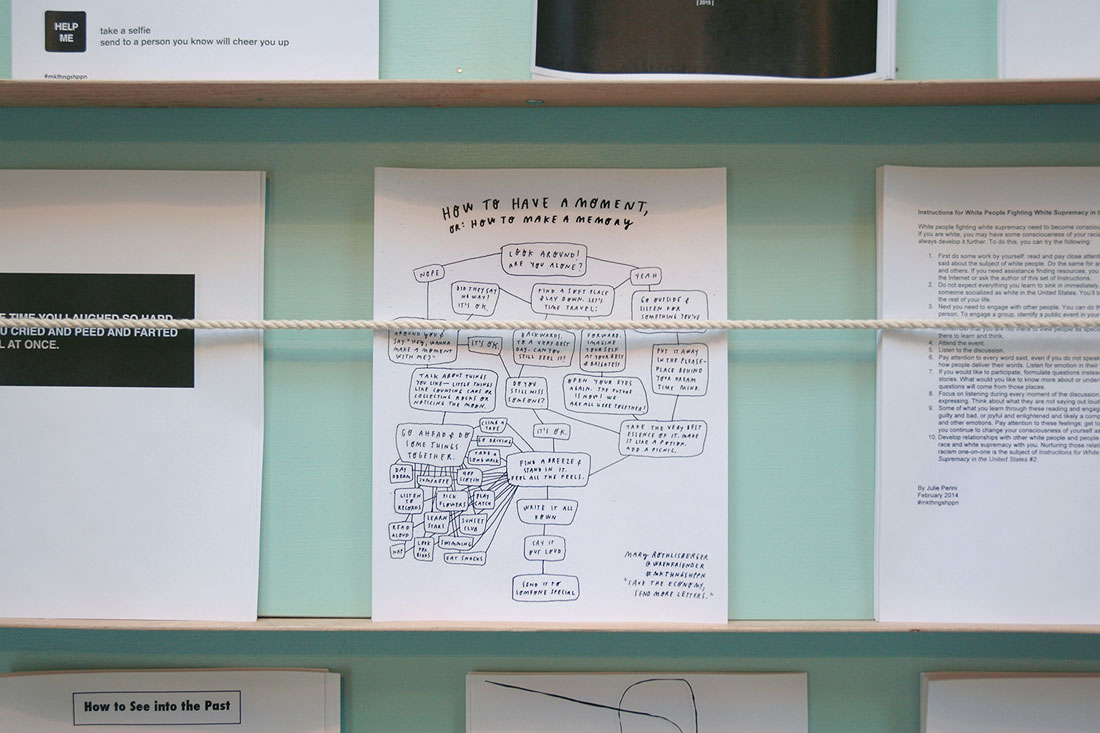 HELP
ME
take a selfie
send to a person you know will cheer you up
#mkthngshppn
[ 2015 ]
E TIME YOU LAUGHED SO HARD
U CRIED AND PEED AND FARTED
L AT ONCE.
HOW TO HAVE A MOMENT,
OR: HOW TO MAKE A MEMORY
LOOK AROUND!
ARE YOU ALONE?
NOPE
YEAH
DID THEY SAY
NO WAY?
IT'S OK.
FIND A SOFT PLACE
& LAY DOWN. LET'S
TIME TRAVEL:
GO OUTSIDE &
LISTEN FOR
SOMETHING YOU'VE
AROUND YOU &
SAY "HEY, WANNA
MAKE A MOMENT
WITH ME?"
IT'S OK.
BACKWARDS,
TO A VERY BEST
DAY. CAN YOU
STILL FEEL IT?
FORWARD.
IMAGINE
YOURSELF
AT YOUR BEST
& BRIGHTEST!
PUT IT AWAY
IN THE PLEASE-
PLACE BEHIND
YOUR DREAM
TIME MIND.
TALK ABOUT THINGS
YOU LIKE— LITTLE THINGS
LIKE COUNTING CARS OR
COLLECTING ROCKS OR
NOTICING THE MOON.
DO YOU
STILL MISS
SOMEONE?
OPEN YOUR EYES
AGAIN. THE FUTURE
IS NOW! WE
ARE ALL HERE TOGETHER!
GO AHEAD & DO
SOME THINGS
TOGETHER.
CLIMB A
TREE
GO DRIVING
TAKE A
LONG WALK
IT'S OK.
TAKE THE VERY BEST
ESSENCE OF IT. MAKE
IT LIKE A POTION.
ADD A PICNIC.
FIND A BREEZE &
STAND IN IT.
FEEL ALL THE FEELS.
DAY
DREAM
JUMPROPE
HOP
SCOTCH
LISTEN
TO
RECORDS
PICK
FLOWERS
PLAY
CATCH
READ
ALOUD
LEARN
STARS
SUNSET
CLUB
NAP
LOOK
FOR
BIRDS
SWIMMING
EAT SNACKS
WRITE IT ALL
DOWN
SAY IT
OUT LOUD
SEND IT TO
SOMEONE SPECIAL
MARY ROTHLISBERGER
@WRENFRIENDER
#MKTHNGSHPPN
"SAVE THE ECONOMY,
SEND MORE LETTERS."
Instructions for White People Fighting White Supremacy in t
White people fighting white supremacy need to become consciou
If you are white, you may have some consciousness of your racia
always develop it further. To do this, you can try the following:
1. First do some work by yourself: read and pay close attenti
said about the subject of white people. Do the same for ar
and others. If you need assistance finding resources, you
the Internet or ask the author of this set of Instructions.
2. Do not expect everything you learn to sink in immediately,
someone socialized as white in the United States. You'll b
the rest of your life.
3. Next you need to engage with other people. You can do th
person. To engage a group, identify a public event in your
there to learn and to think.
4. Attend the event.
5. Listen to the discussion.
6. Pay attention to every word said, even if you do not speak
how people deliver their words. Listen for emotion in their
7. If you would like to participate, formulate questions instead
stories. What would you like to know more about or under
questions will come from those places.
8. Focus on listening during every moment of the discussion
expressing. Think about what they are not saying out loud
9. Some of what you learn through these reading and engag
guilty and bad, or joyful and enlightened and likely a comp
and other emotions. Pay attention to these feelings; get to
you continue to change your consciousness of yourself as
10. Develop relationships with other white people and people
race and white supremacy with you. Nurturing those relat
racism one-on-one is the subject of Instructions for White
Supremacy in the United States #2.
By Julie Perini
February 2014
#mkthngshppn
How to See into the Past